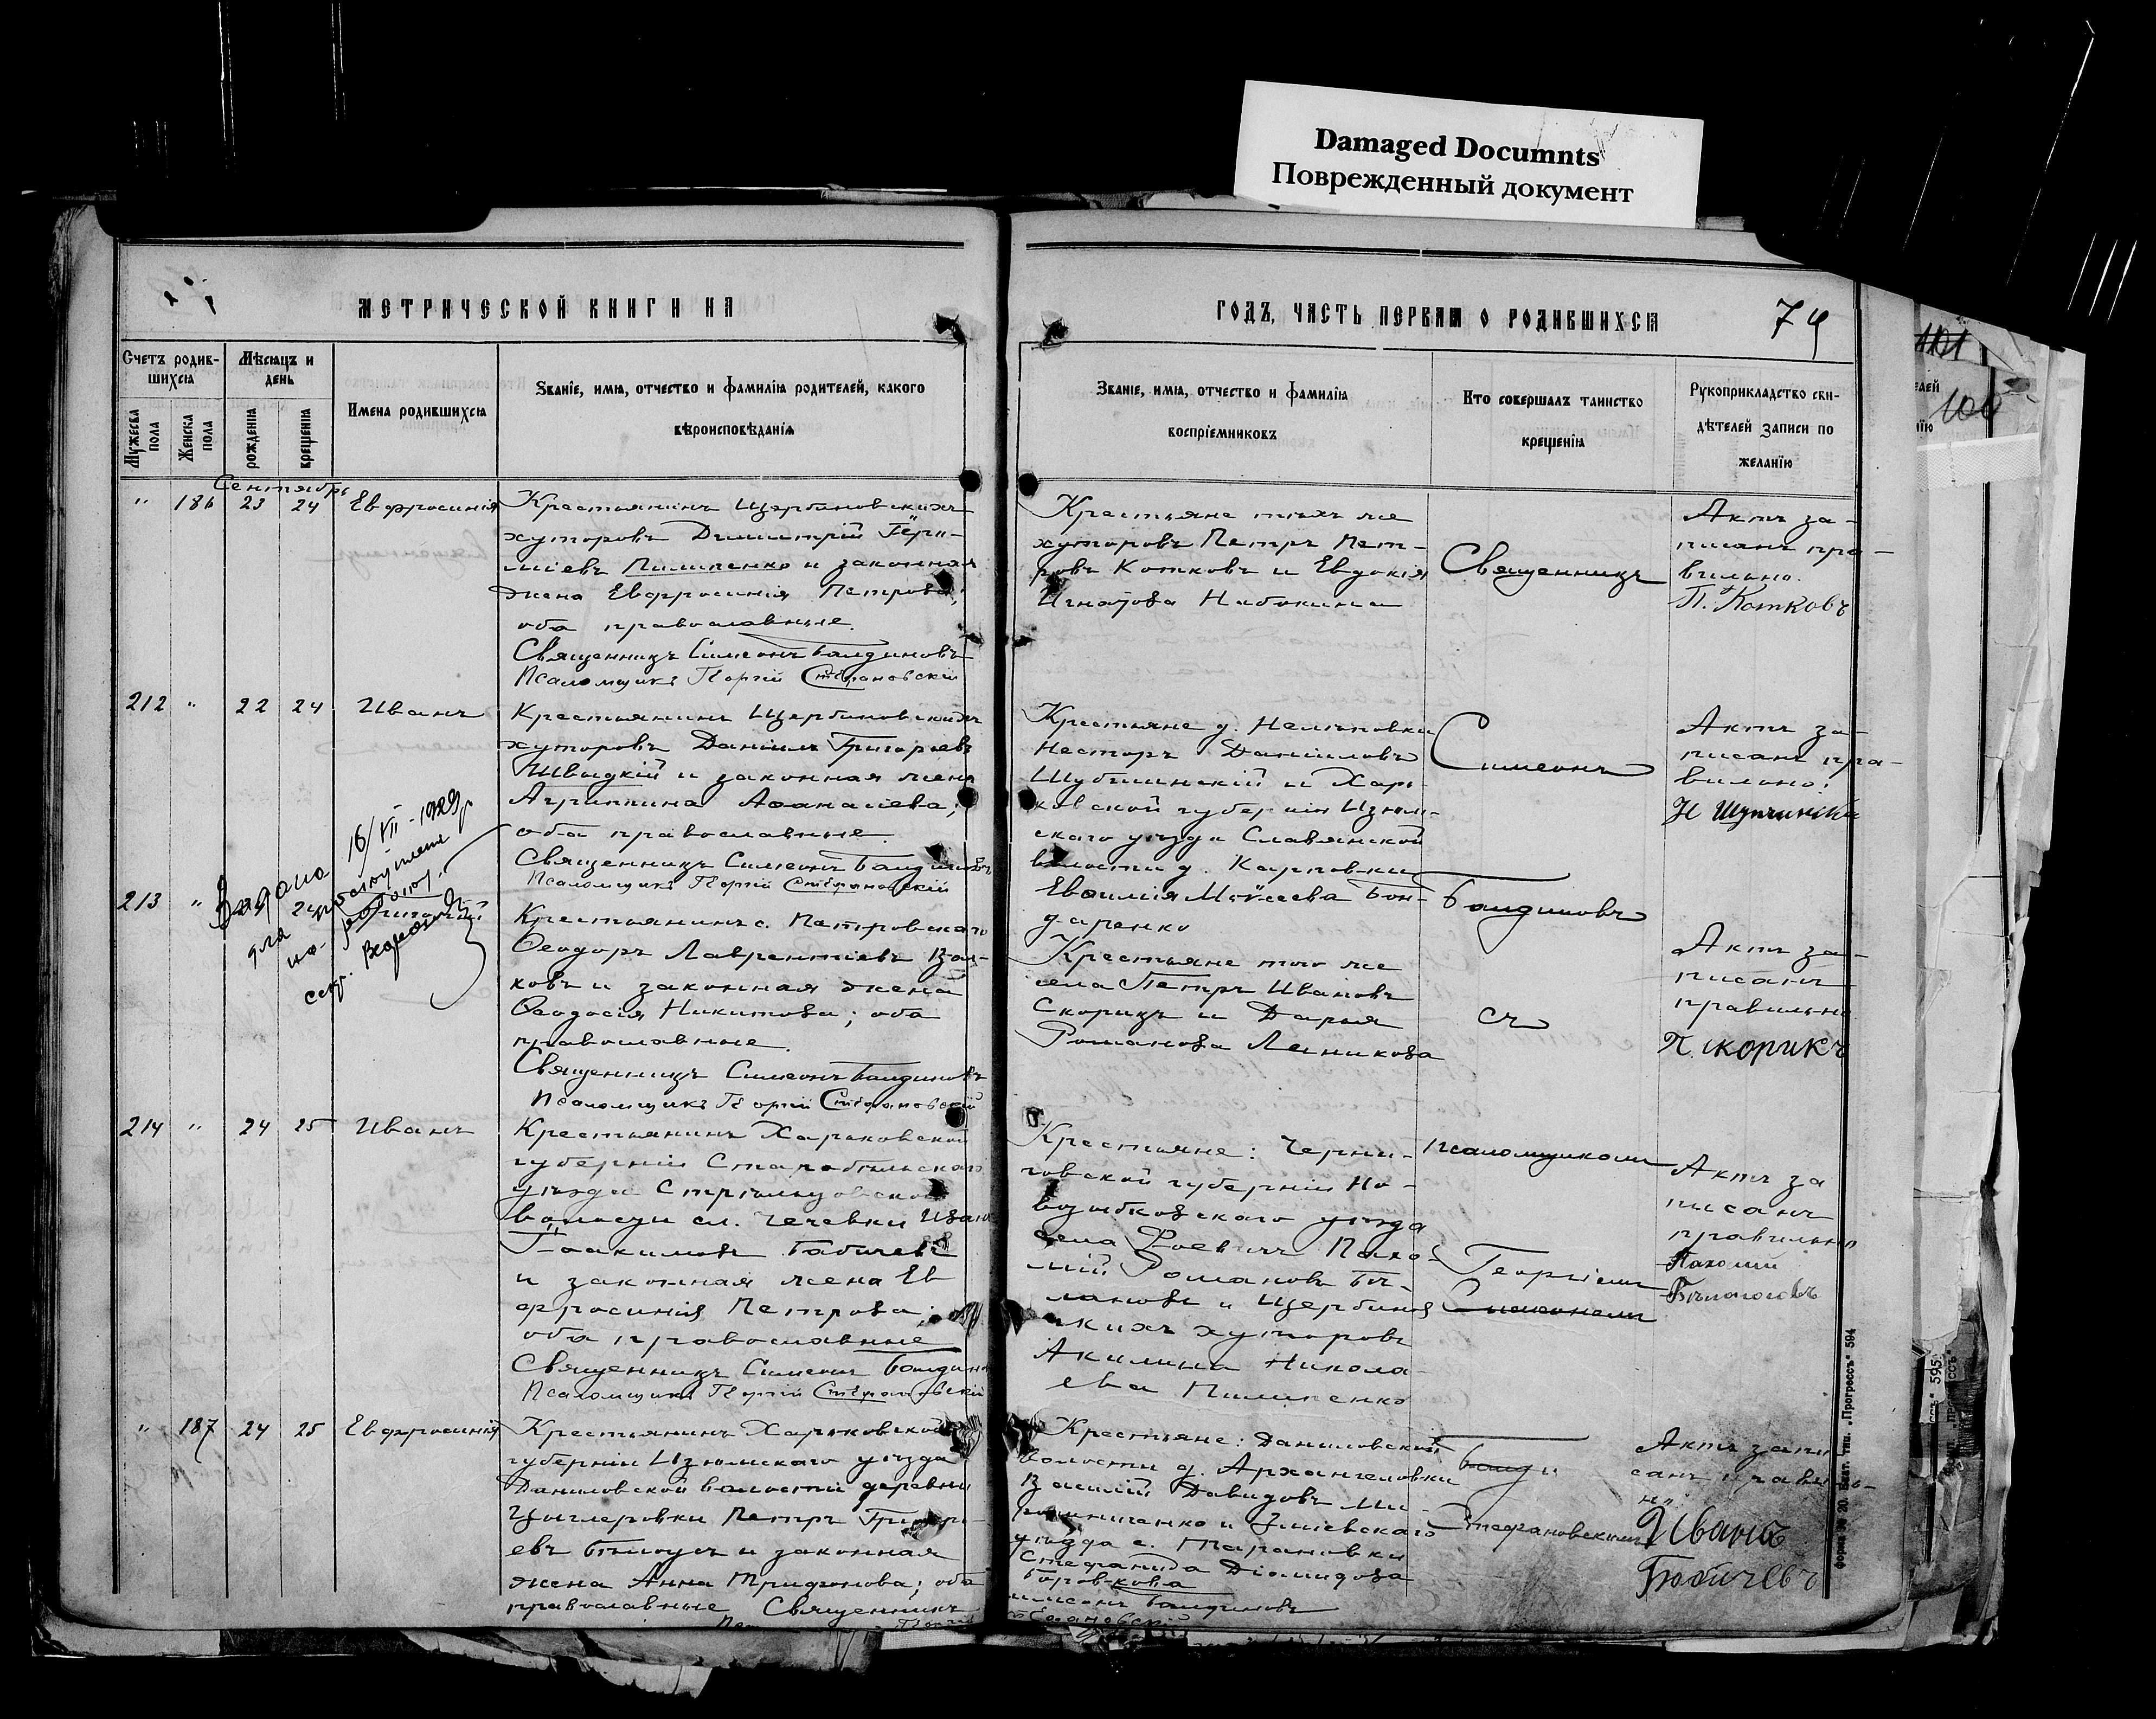 Damaged Documnts
Поврежденный документ
МЕТРИЧЕСКОЙ КНИГИ НА
ГОДЪ, ЧАСТЬ ПЕРВАЯ О РОДИВШИХСЯ
74
Счетъ родив-
шихся
Мѣсяцъ и
день
Мужеска
пола
Женска
пола
рожденія
крещенія
Имена родившихся
Званіе, имя, отчество и фамилія родителей, какого
вѣроисповѣданія
Званіе, имя, отчество и фамилія
воспріемниковъ
Кто совершалъ таинство
крещенія
Рукоприкладство сви-
дѣтелей записи по
желанію
101
100
Сентябрь
" 186 23 24 Евфросинія
Крестьянинъ Щербиновскихъ
хуторовъ Димитрій
Пилипенко и законная
жена Евфросинія Петрова;
оба православные.
Священникъ Симеонъ Балдиновъ
Псаломщикъ Георгій Стефановскій
Крестьяне тѣхъ же
хуторовъ Петръ Пет-
ровъ Котковъ и Евдокія
Игнатова Набокина
Священникъ
Актъ за-
писанъ пра-
вильно.
П. Котковъ
212 " 22 24 Иванъ
Крестьянинъ Щербиновскихъ
хуторовъ Даніилъ Григорьевъ
Швыдкій и законная жена
Агриппина Аѳанасіева;
оба православные
Священникъ Симеонъ Балдиновъ
Псаломщикъ Георгій Стефановскій
Крестьяне д. Нелѣповки
Несторъ Даніиловъ
и Харь-
ковской губерніи Изюм-
скаго уѣзда Славянской
волости д. Карповки
Евфимія Моѵсеева Бон-
даренко
Симеонъ
Балдиновъ
Актъ за-
писанъ пра-
вильно:
16/VII - 1929 р
Видано
для
213 " 24 Григорій
Крестьянинъ с. Петровскаго
Ѳеодоръ Лаврентіевъ
ковъ и законная жена
Ѳеодосія Никитова; оба
православные.
Священникъ Симеонъ Балдиновъ
Псаломщикъ Георгій Стефановскій
Крестьяне того же
села Петръ Ивановъ
Скорикъ и Дарья
Романова
съ
Актъ за-
писанъ
правильно
П. Скорикъ
214 " 24 25 Иванъ
Крестьянинъ Харьковской
губерніи Старобѣльскаго
уѣзда Стрѣльцовской
волости сл. Чечевки Иванъ
Іоакимовъ Бабичевъ
и законная жена Ев
фросинія Петрова;
оба православные
Священникъ Симеонъ Балдиновъ
Псаломщикъ Георгій Стефановскій
Крестьяне: Черни-
говской губерніи Но-
возыбковскаго уѣзда
села Фоевичъ Пахо-
мій Романовъ
и Щербинов
скихъ хуторовъ
Акилина Никола-
ева Пилипенко
псаломщикомъ
Георгіемъ
Симеономъ
Актъ за
писанъ
правильно
Пахомий
" 187 24 25 Евфросинія
Крестьянинъ Харьковской
губерніи Изюмскаго уѣзда
Даниловской волости деревни
Петръ Григорь-
евъ Бѣлоусъ и законная
жена Анна Трифонова; оба
православные Священникъ
Крестьяне: Даниловской
волости д. Архангеловки
Василій Давидовъ Ми-
рошниченко и Зміевскаго
уѣзда с. Тарановки
Стефанида Діомидова
Боровкова
Симеонъ Балдиновъ
Стефановскимъ
Актъ запи
санъ правиль-
но
Иванъ
Бабичевъ
Форма № 20. Бахм. тип. „Прогрессъ" 594